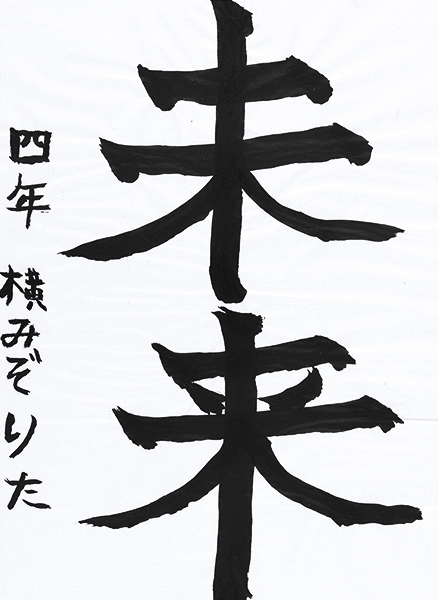 未来
四年 横みぞりた